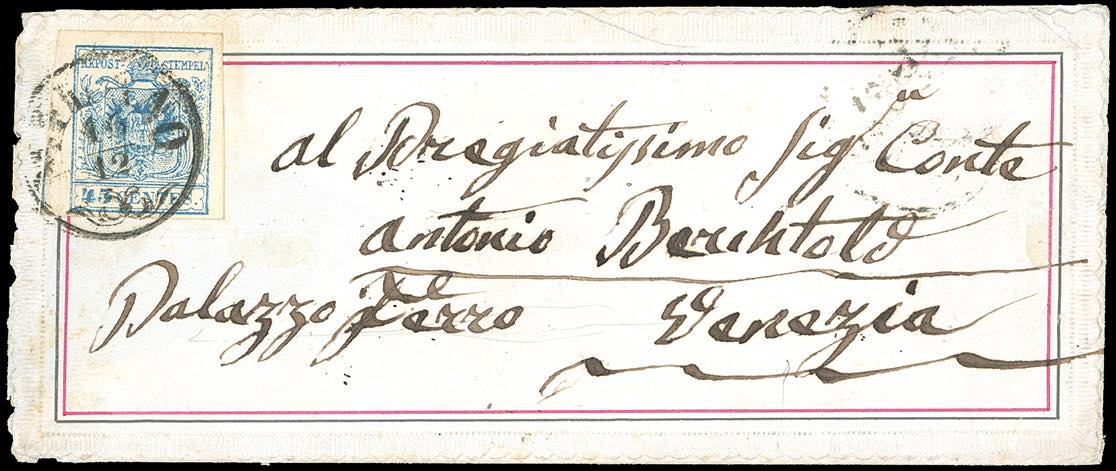 KREUZPOST-STEMPEL
45 CENTES.
MILANO
12
al Pregiatissimo Sig.r Conte
antonio Berchtold
Palazzo Ferro Venezia